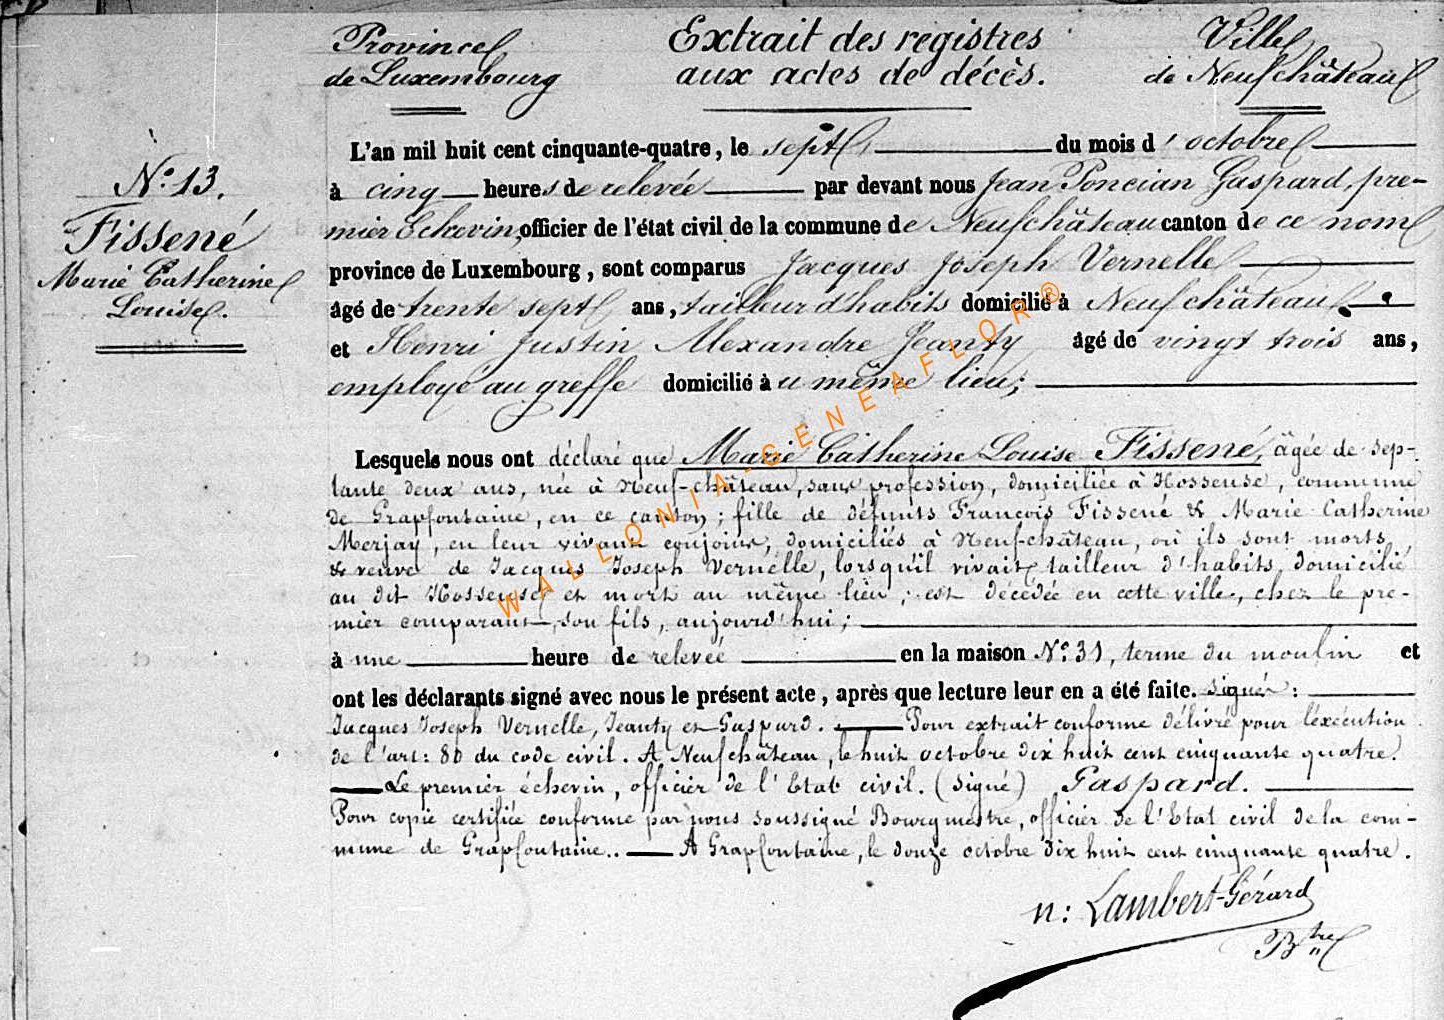 Province
de Luxembourg
Extrait des registres
aux actes de décès.
Ville
de Neufchâteau
N.° 13.
Fissené
Marie Catherine
Louise.
L'an mil huit cent cinquante-quatre, le sept du mois d'octobre
à cinq heures de relevée par devant nous Jean Poncian Gaspard, pre-
mier Echevin, officier de l'état civil de la commune de Neufchâteau canton de ce nom
province de Luxembourg, sont comparus Jacques Joseph Vernelle
âgé de trente sept ans, tailleur d'habits domicilié à Neufchâteau
et Henri Justin Alexandre Jeanty âgé de vingt trois ans,
employé au greffe domicilié au même lieu;
Lesquels nous ont déclaré que Marie Catherine Louise Fissené, âgée de sep-
tante deux ans, née à Neuf-château, sans profession, domiciliée à Hosseuse, commune
de Grapfontaine, en ce canton; fille de défunts François Fissené & Marie Catherine
Merjay, en leur vivant conjoins, domiciliés à Neuf-château, où ils sont morts,
& veuve de Jacques Joseph Vernelle, lorsqu'il vivait tailleur d'habits, domicilié
au dit Hosseuse et mort au même lieu; est décédée en cette ville, chez le pre-
mier comparant, son fils, aujourd'hui;
à une heure de relevée en la maison N.° 31, terme du moulin et
ont les déclarants signé avec nous le présent acte, après que lecture leur en a été faite. Signés:
Jacques Joseph Vernelle, Jeanty et Gaspard. Pour extrait conforme délivré pour l'exécution
de l'art: 80 du code civil. A Neufchâteau, le huit octobre dix huit cent cinquante quatre.
Le premier échevin, officier de l'Etat civil. (Signé) Gaspard.
Pour copie certifiée conforme par nous soussigné Bourgmestre, officier de l'Etat civil de la com-
mune de Grapfontaine. A Grapfontaine, le douze octobre dix huit cent cinquante quatre.
n: Lambert-Gérard
B^tre
WALLONIA-GENEAFLOR®